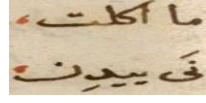 ما اكلت،
نَى ييدِن،